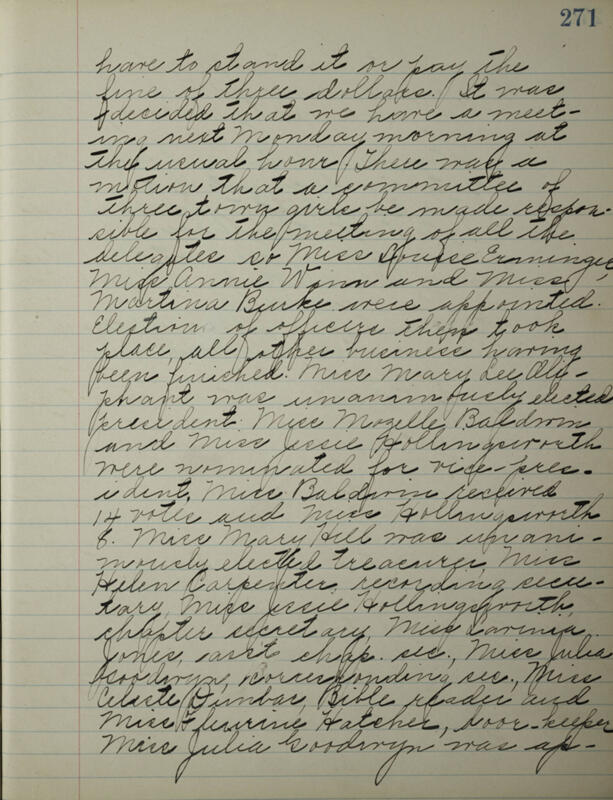 271
have to stand it or pay the
fine of three dollars. It was
decided that we have a meet-
ing next Monday morning at
the usual hour. There was a
motion that a committee of
three town girls be made respon-
sible for the meeting of all the
delegates so Miss Louise Erminger,
Miss Annie Winn and Miss
Martina Burke were appointed.
Election of officers then took
place, all other business having
been finished. Miss Mary Lee Oly-
phant was unanimously elected
president. Miss Mozelle Baldwin
and Miss Jessie Hollingsworth
were nominated for vice-pres-
ident, Miss Baldwin received
14 votes and Miss Hollingsworth
8. Miss Mary Hill was unani-
mously elected treasurer, Miss
Helen Carpenter, recording secre-
tary, Miss Jessie Hollingsworth,
chapter secretary, Miss Lavinia
Jones, ass't chap. sec., Miss Julia
Goodwyn, corresponding sec., Miss
Celeste Dunbar, Bible reader and
Miss Fleurine Hatcher, door-keeper
Miss Julia Goodwyn was ap-